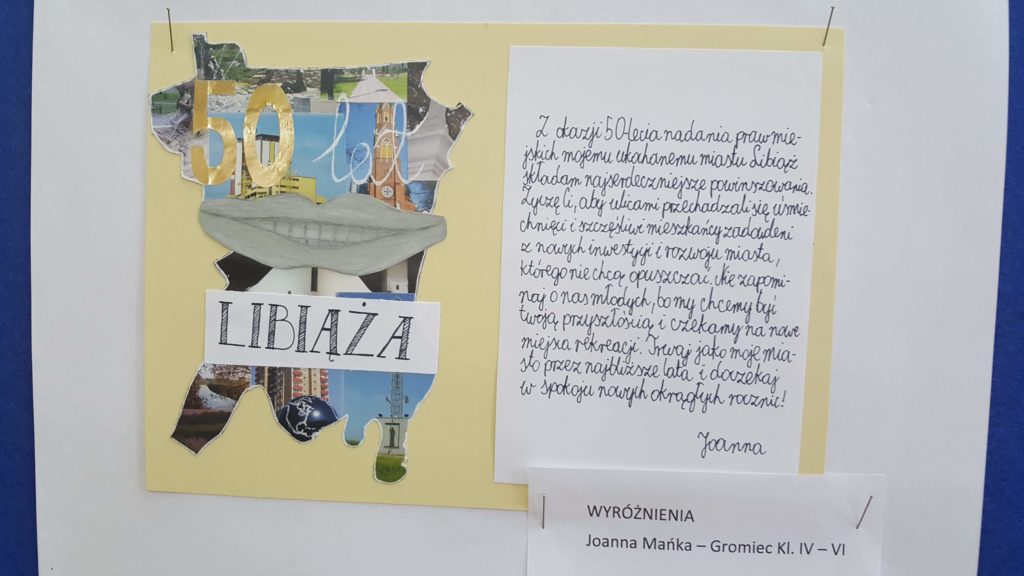 50 lat
LIBIĄŻA
Z okazji 50-lecia nadania praw mie-
jskich mojemu ukahanemu miastu Libiąż
składam najserdeczniejsze powinszowania.
Życzę Ci, aby ulicami przechadzali się uśmie-
chnięci i szczęśliwi mieszkańcy zadowleni
z nowych inwestycji i rozwoju miasta,
którego nie chcą opuszczać. Nie zapomi-
naj o nas młodych, bo my chcemy być
twoją przyszłością i czekamy na nowe
miejsca rekreacji. Trwaj jako moje mia-
sto przez najbliższe lata i doczekaj
w spokoju nowych okrągłych rocznic!
Joanna
WYRÓŻNIENIA
Joanna Mańka – Gromiec Kl. IV – VI